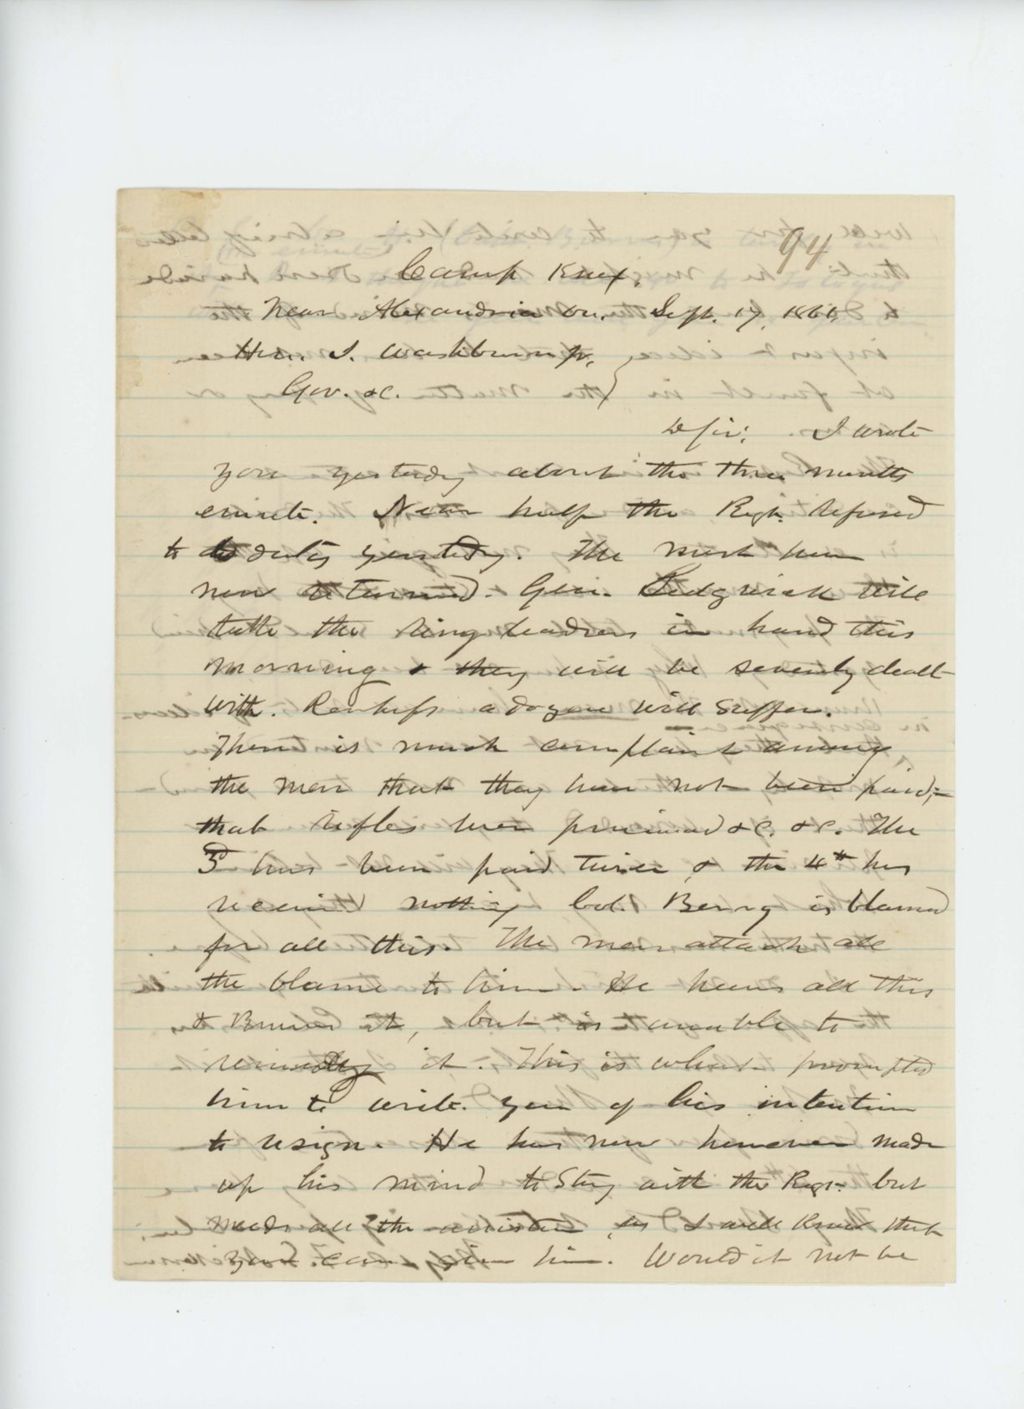 94
Camp Knox,
Near Alexandria Va., Sept. 17, 1861,
Hon. I. Washburn jr,
Gov. &c.
D Sir; I wrote
you yesterday about the three months
emeute. Near half the Regt. refused
to do duty yesterday. The most have
now returned. Gen. Sedgwick will
take the ring leaders in hand this
morning & they will be severely dealt
with. Perhaps a dozen will suffer.
There is much complaint among
the men that they have not been paid,-
that rifles were promised &c. &c. The
3d has been paid twice, & the 4th has
received nothing Col. Berry is blamed
for all this. The men attach all
the blame to him. He hears all this
& knows it, but is unable to
remedy it. This is what prompted
him to write you of his intention
to resign. He has now however made
up his mind to stay with the Regt. but
needs all the assistance, as I well know that
you can give him. Would it not be